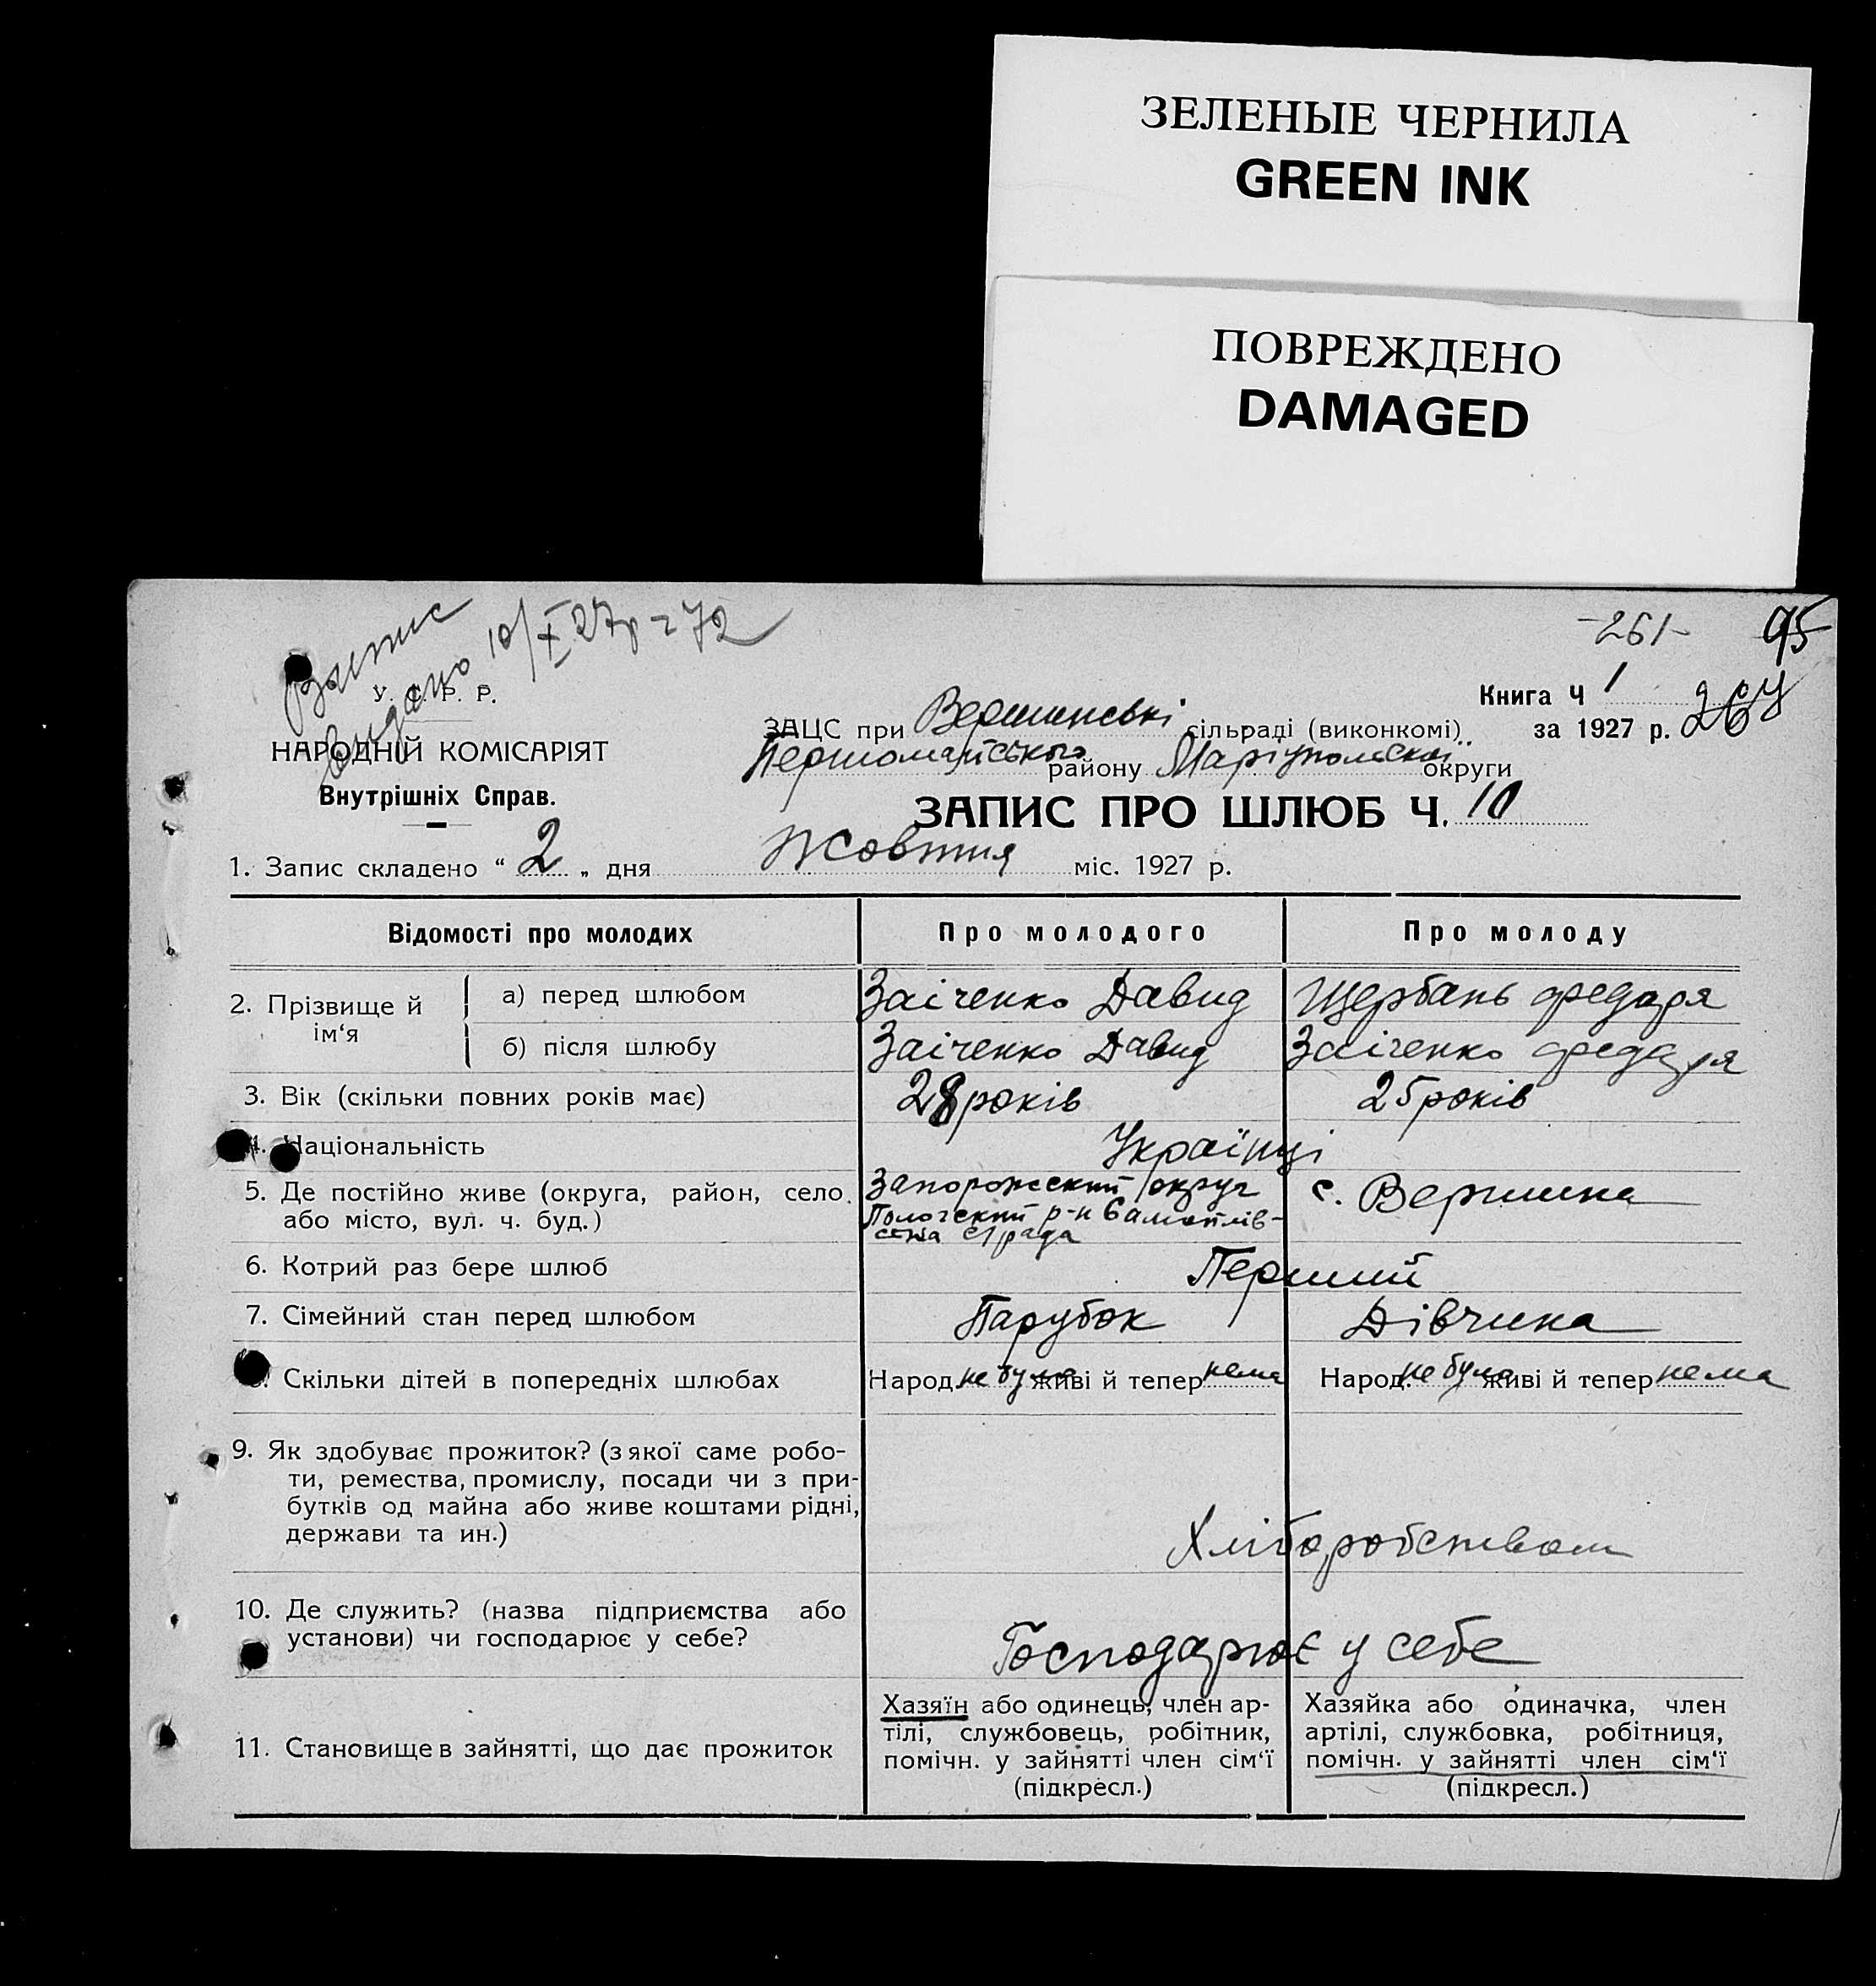 ЗЕЛЕНЫЕ ЧЕРНИЛА
GREEN INK
ПОВРЕЖДЕНО
DAMAGED
Видано 10/X 27р
-261- 95
У. С. Р. Р.
Книга Ч 1
ЗАЦС при Вершинські сільраді (виконкомі) за 1927 р.
НАРОДНІЙ КОМІСАРІЯТ
Першомайського району Маріупольскої округи
Внутрішніх Справ.
ЗАПИС ПРО ШЛЮБ Ч. 10
1. Запис складено “ 2 „ дня Жовтня міс. 1927 р.
Відомості про молодих Про молодого Про молоду
2. Прізвище й ім‘я
а) перед шлюбом Заіченко Давид Щербань Федаря
б) після шлюбу Заіченко Давид Заіченко Федаря
3. Вік (скільки повних років має) 28 років 25 років
4. Національність Українці
5. Де постійно живе (округа, район, село, або місто, вул. ч. буд.)
Запорожский округ
Пологский р-н
с/рада
с. Вершина
6. Котрий раз бере шлюб Перший
7. Сімейний стан перед шлюбом Парубок Дівчина
8. Скільки дітей в попередніх шлюбах Народ. не було живі й тепер нема Народ. не було живі й тепер нема
9. Як здобуває прожиток? (з якої саме робо-
ти, ремества, промислу, посади чи з при-
бутків од майна або живе коштами рідні,
держави та ин.)
Хліборобством
10. Де служить? (назва підприємства або
установи) чи господарює у себе?
Господарює у себе
11. Становище в зайнятті, що дає прожиток
Хазяїн або одинець, член ар-
тілі, службовець, робітник,
помічн. у зайнятті член сім‘ї
(підкресл.)
Хазяйка або одиначка, член
артілі, службовка, робітниця,
помічн. у зайнятті член сім‘ї
(підкресл.)